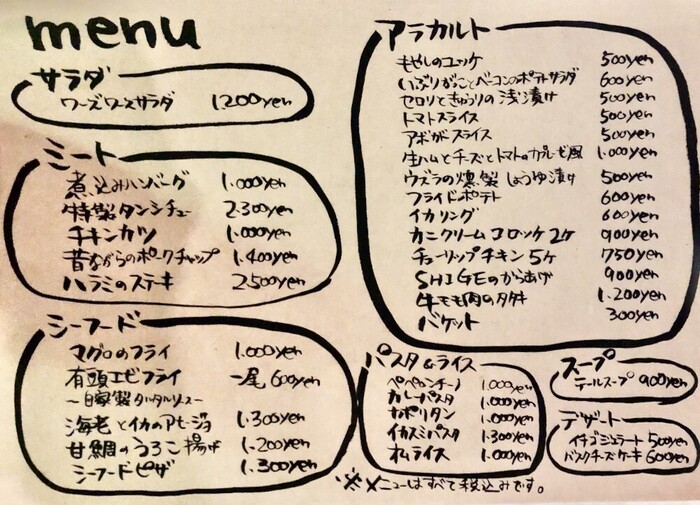 menu
サラダ
ワーズワースサラダ 1200yen
ミート
煮込みハンバーグ 1.000yen
特製タンシチュー 2.300yen
チキンカツ 1.000yen
昔ながらのポークチャップ 1.400yen
ハラミのステーキ 2.500yen
シーフード
マグロのフライ 1.000yen
有頭エビフライ 一尾 600yen
〜自家製タルタルソース〜
海老とイカのアヒージョ 1.300yen
甘鯛のうろこ揚げ 1.200yen
シーフードピザ 1.300yen
アラカルト
もやしのユッケ 500yen
いぶりがっことベーコンのポテトサラダ 600yen
セロリときゅうりの浅漬け 500yen
トマトスライス 500yen
アボガドスライス 500yen
生ハムとチーズとトマトのカプレーゼ風 1.000yen
ウズラの燻製しょうゆ漬け 500yen
フライドポテト 600yen
イカリング 600yen
カニクリームコロッケ2ケ 900yen
チューリップチキン5ケ 750yen
SHIGEのからあげ 900yen
牛モモ肉のタタキ 1.200yen
バケット 300yen
パスタ&ライス
ペペロンチーノ 1.000yen
カレーパスタ 1.000yen
ナポリタン 1.000yen
イカスミパスタ 1.300yen
オムライス 1.000yen
スープ
テールスープ 900yen
デザート
イチゴジェラート 500yen
バスクチーズケーキ 600yen
※メニューはすべて税込みです。